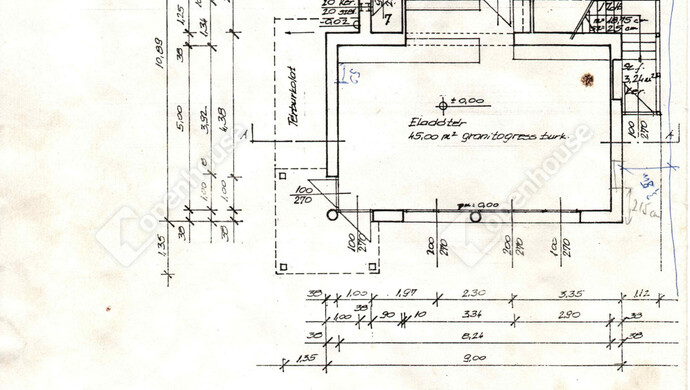 7
3,24 m²
ker.
Térburkolat
±0,00
Eladótér
45,00 m² granitogress burk.
A
A
100
270
100
270
pm: 0,00
100
270
200
270
200
270
100
270
215 cm
10,89
1,35
1,25
38
5,00
38
1,34
3,92
1,00
38
4,38
1,00
38
38
1,00
1,97
2,30
3,35
1,12
38
1,00
90
10
3,34
2,90
38
38
8,24
38
1,35
9,00
openhouse
openhouse
openhouse